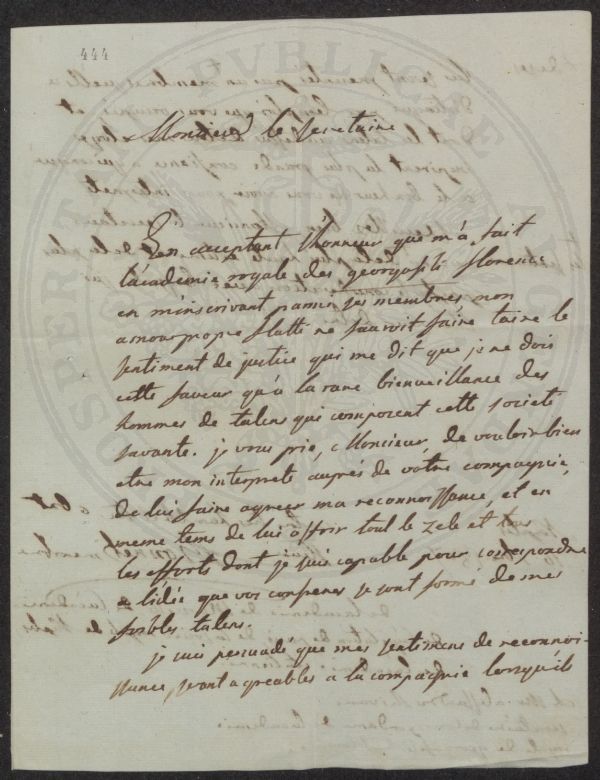 444
PVBLICAE
Monsieur le secretaire
En acceptant l'honneur que m'a fait
l'academie royale des georgofili florence
en m'inscrivant parmi ses membres mon
amour propre flatté ne sauroit faire taire le
sentiment de justice qui me dit que je ne dois
cette faveur qu'à la rare bienveillance des
hommes de talens qui composent cette societé
savante. je vous prie, Monsieur, de vouloir bien
etre mon interprete auprés de votre compagnie,
de lui faire agreer ma reconnoissance, et en
meme tems de lui offrir tout le zele et tous
les efforts dont je suis capable pour correspondre
a l'idée que vos confreres se sont formé de mes
foibles talens.
je suis persuadé que mes sentimens de reconnoi-
ssance, seront agreables à la compagnie lorsqu'ils